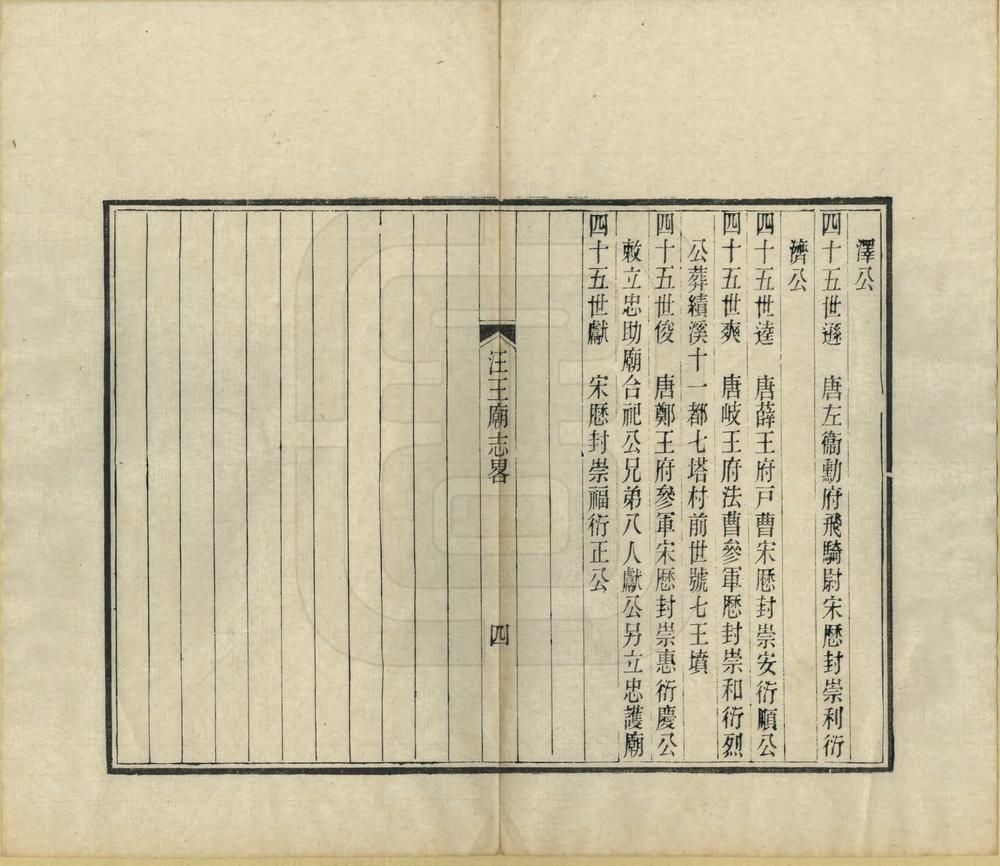 澤公
四十五世遜　唐左衞勳府飛騎尉宋歷封崇利衍
濟公
四十五世逵　唐薛王府戸曹宋歷封崇安衍順公
四十五世爽　唐岐王府法曹參軍歷封崇和衍烈
公葬績溪十一都七塔村前世號七王墳
四十五世俊　唐鄭王府參軍宋歷封崇惠衍慶公
敕立忠助廟合祀公兄弟八人獻公另立忠護廟
四十五世獻　宋歷封崇福衍正公
汪王廟志畧　四